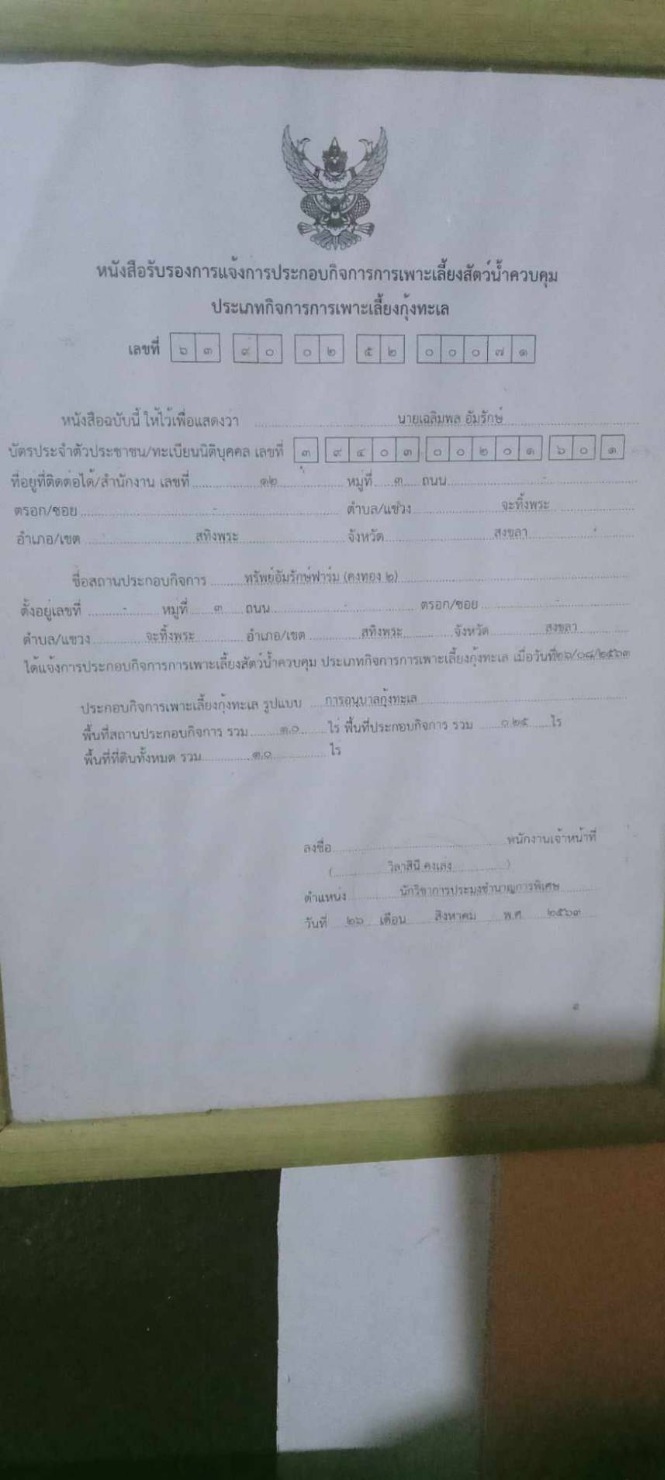 หนังสือรับรองการแจ้งการประกอบกิจการการเพาะเลี้ยงสัตว์น้ำควบคุม
ประเภทกิจการการเพาะเลี้ยงกุ้งทะเล
เลขที่ ๖๓ ๙๐ ๐๒ ๕๒ ๐๐๐๗๑
หนังสือฉบับนี้ ให้ไว้เพื่อแสดงว่า นายเฉลิมพล อัมรักษ์
บัตรประจำตัวประชาชน/ทะเบียนนิติบุคคล เลขที่ ๓ ๙๔๐๓ ๐๐๒๐๑ ๖๐ ๑
ที่อยู่ที่ติดต่อได้/สำนักงาน เลขที่ ๑๒ หมู่ที่ ๓ ถนน -
ตรอก/ซอย - ตำบล/แขวง จะทิ้งพระ
อำเภอ/เขต สทิงพระ จังหวัด สงขลา
ชื่อสถานประกอบกิจการ ทรัพย์อัมรักษ์ฟาร์ม (คงทอง ๒)
ตั้งอยู่เลขที่ - หมู่ที่ ๓ ถนน - ตรอก/ซอย -
ตำบล/แขวง จะทิ้งพระ อำเภอ/เขต สทิงพระ จังหวัด สงขลา
ได้แจ้งการประกอบกิจการการเพาะเลี้ยงสัตว์น้ำควบคุม ประเภทกิจการการเพาะเลี้ยงกุ้งทะเล เมื่อวันที่๒๖/๐๘/๒๕๖๓
ประกอบกิจการเพาะเลี้ยงกุ้งทะเล รูปแบบ การอนุบาลกุ้งทะเล
พื้นที่สถานประกอบกิจการ รวม ๓.๐ ไร่ พื้นที่ประกอบกิจการ รวม ๐.๒๕ ไร่
พื้นที่ที่ดินทั้งหมด รวม ๓.๐ ไร่
ลงชื่อ พนักงานเจ้าหน้าที่
( วิลาสินี คงเล่ง )
ตำแหน่ง นักวิชาการประมงชำนาญการพิเศษ
วันที่ ๒๖ เดือน สิงหาคม พ.ศ. ๒๕๖๓